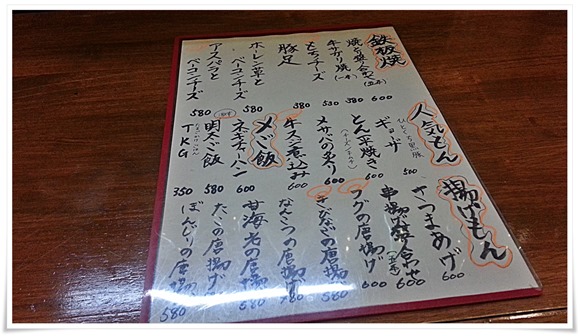 鉄板焼
焼とり盛合せ(五本) 600
牛サガリ焼(一本) 380
とろチーズ 530
豚足 580
ホーレン草と
ベーコンチーズ 580
アスパラと
ベーコンチーズ 580
人気もん
ひとくち黒豚
ギョーザ 500
とん平焼き 600
メサバの炙り 600
牛スジ煮込み 600
〆ご飯
ネギチャーハン 600
明太ご飯 580
TKG 350
揚げもん
さつまあげ 600
串揚げ盛合わせ(五本) 600
フグの唐揚げ 600
きびなごの唐揚 580
なんこつの唐揚げ 580
甘海老の唐揚 580
たこの唐揚げ 580
ぼんじりの唐揚 580